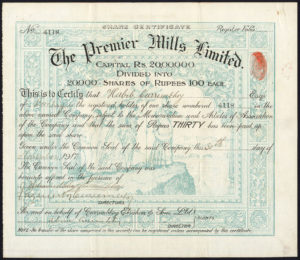 SHARE CERTIFICATE
No. 4118
Regular No.
The Premier Mills Limited.
CAPITAL RS. 20,00,000
DIVIDED INTO
20000 SHARES OF RUPEES 100 EACH.
This is to Certify that Habib Esq.
of the registered holder of one share numbered 4118
in the above named Company, subject to the Memorandum and Articles of Association
of the Company and that the sum of Rupees THIRTY has been paid up
upon the said share.
Given under the Common Seal of the said Company this day of
1917
The Common Seal of the said Company was
hereunto affixed in the presence of
DIRECTORS
For and on behalf of Currimbhoy Ebrahim & Sons, Ltd.
AGENTS
DIRECTOR
NOTE. No transfer of the share comprised in this security can be registered unless accompanied by this certificate.